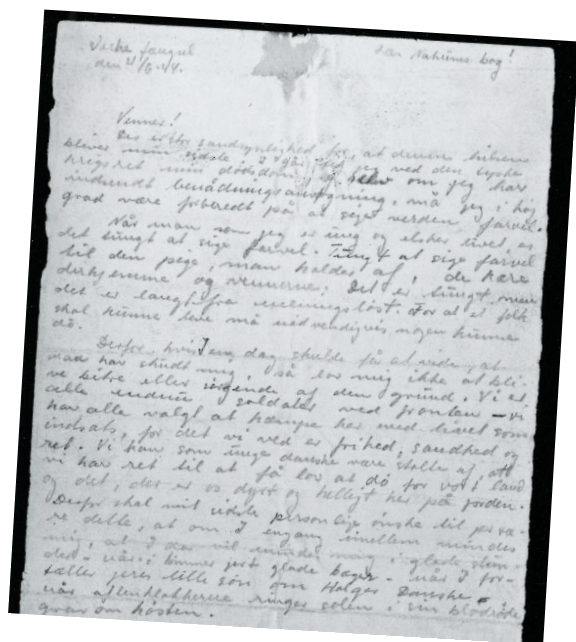 Vestre Fængsel
den 21/6-44.
Venner!
Der er stor sandsynlighed for, at denne hilsen
bliver min sidste. I går fik jeg ved den tyske
krigsret min dødsdom, og selv om jeg har
indsendt benådningsansøgning, må jeg i høj
grad være forberedt på at sige verden farvel.
Når man som jeg er ung og elsker livet, er
det tungt at sige farvel. Tungt at sige farvel
til den pige, man holder af, de kære
derhjemme og vennerne. Det er tungt, men
det er langtfra meningsløst. For at et folk
skal kunne leve må nødvendigvis nogen kunne
dø.
Derfor, hvis I en dag skulde få at vide, at
man har skudt mig, så lov mig ikke at bli-
ve bitre eller sørgende af den grund. Vi er
alle soldater ved fronten – vi
har alle valgt at kæmpe her med livet som
indsats, for det vi ved er frihed, sandhed og
ret. Vi kan som unge danske være stolte af at
vi har ret til at få lov at dø for vort land
og det, der er os dyrt og helligt her på jorden.
Derfor skal mit sidste personlige ønske til jer væ-
re dette, at om I engang imellem mindes
mig, at I da vil mindes mig i glade stun-
der – når I tømmer jert glade bæger – når I for-
tæller jeres lille søn om Holger Danske –
når aftenklokkerne ringer solen i sin blodrøde
grav om høsten.